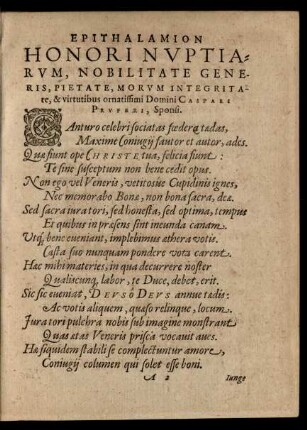 EPITHALAMION
HONORI NVPTIA-
RVM, NOBILITATE GENE-
RIS, PIETATE, MORVM INTEGRITA-
te, & virtutibus ornatissimi Domini CASPARI
PEVFERI, Sponsi.
CAnturo celebri sociatas fœdere tædas,
Maxime Coniugij sautor et autor, ades.
Quæ siunt ope CHRISTE tua, felicia siunt:
Te sine susceptum non bene cedit opus.
Non ego vel Veneris, vetitosue Cupidinis ignes,
Nec memorabo Bonæ, non bona sacra, deæ.
Sed sacra iura tori, sed honesta, sed optima, tempus
Et quibus in præsens sint ineunda canam.
Utq; bene eueniant, implebimus æthera votis.
Casta suo nunquam pondere vota carent.
Hæc mihi materies, in qua decurrere noster
Qualiscunq; labor, te Duce, debet, erit.
Sic sic eueniat, DEVS ô DEVS annue tædis:
Ac votis aliquem, quæso relinque, locum.
Iura tori pulchra nobis sub imagine monstrant
Quas atas Veneris prisca vocauit aues.
Hæ siquidem stabili se complectuntur amore,
Coniugij columen qui solet esse boni.
A 2 Iunge